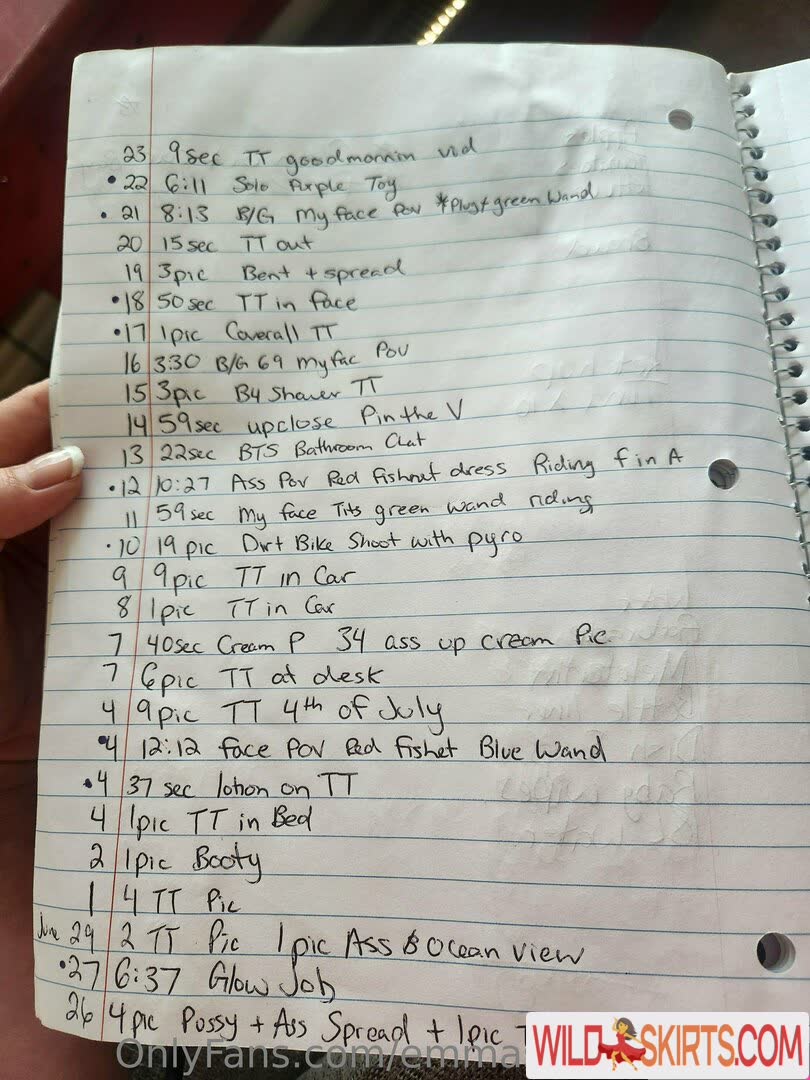 23 9sec TT goodmornin vid
•22 6:11 Solo Purple Toy
•21 8:13 B/G my face POV *Plug+green Wand
20 15sec TT out
19 3pic Bent + spread
•18 50sec TT in face
•17 1pic Coverall TT
16 3:30 B/G 69 my fac POV
15 3pic B4 Shower TT
14 59sec upclose Pin the V
13 22sec BTS Bathroom Chat
•12 10:27 Ass Pov Red Fishnut dress Riding f in A
11 59sec my face Tits green wand riding
•10 19pic Dirt Bike Shoot with pyro
9 9pic TT in Car
8 1pic TT in Car
7 40sec Cream P 34 ass up cream Pic
7 6pic TT at desk
4 9pic TT 4th of July
•4 12:12 face POV Red Fishet Blue Wand
•4 37 sec lotion on TT
4 1pic TT in Bed
2 1pic Booty
1 4 TT Pic
June 29 2 TT Pic 1pic Ass & Ocean view
•27 6:37 Glow Job
26 4pic Pussy + Ass Spread + 1pic
OnlyFans.com/emma
WILDSKIRTS.COM